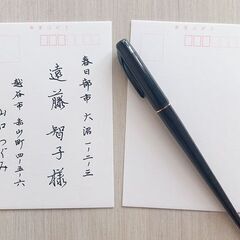 春日部市大沼一-二-三
遠藤智子様
越谷市赤山町四-五-六
山口つぐみ